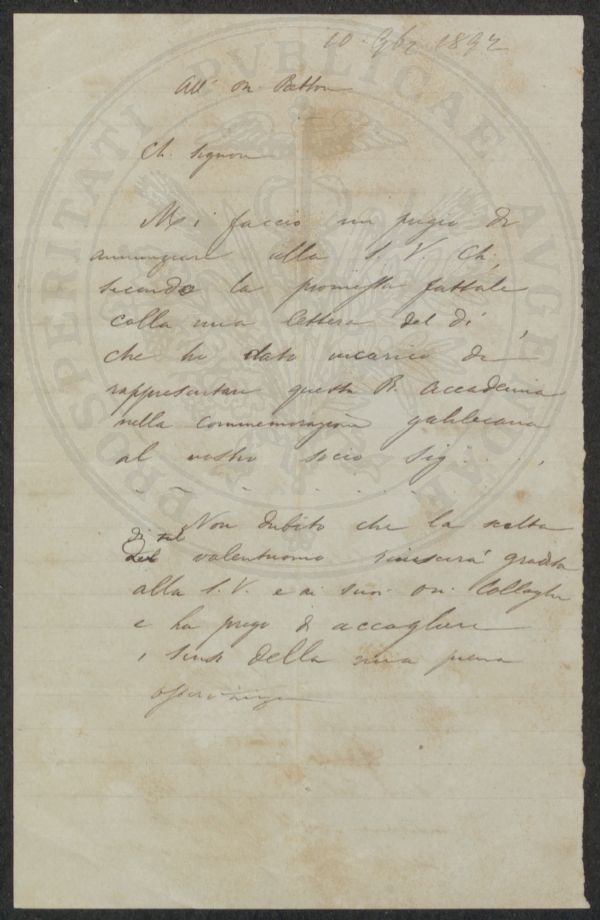 10 9bre 1892
All' on. Rettore
Ch. Signore
Mi faccio un pregio di
annunziare alla S. V. Ch.,
secondo la promessa fattale
colla mia lettera del dì ,
che ho dato incarico di
rappresentare questa R. Accademia
nella commemorazione galileiana
al nostro socio Sig. . . . ,
Non dubito che la scelta
di tal
del valentuomo riuscirà gradita
alla S. V. e ai suoi on. Colleghi
e La prego di accogliere
i sensi della mia piena
osservanza
PROSPERITATI PVBLICAE AVGENDAE